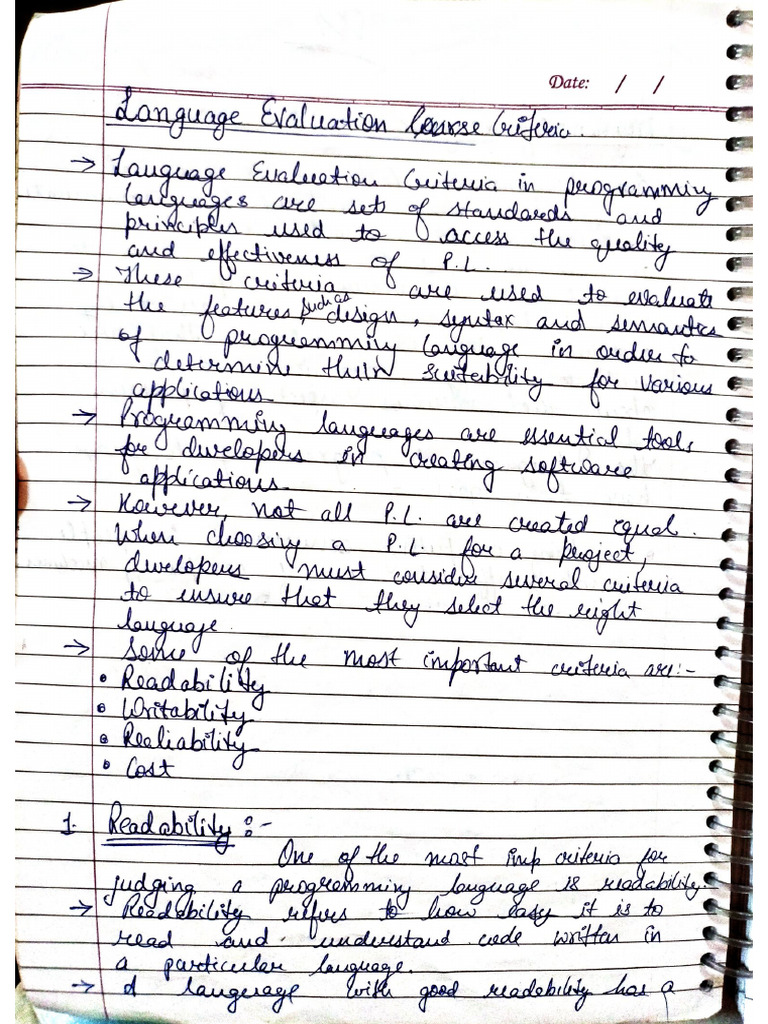 Date: / /
Language Evaluation Course Criteria
→ Language Evaluation Criteria in programming
languages are sets of standards and
principles used to access the quality
and effectiveness of P.L.
→ These criteria are used to evaluate
the features such as design, syntax and semantics
of programming language in order to
determine their suitability for various
applications
→ Programming languages are essential tools
for developers in creating software
applications.
→ However, not all P.L. are created equal.
When choosing a P.L. for a project,
developers must consider several criteria
to ensure that they select the right
language.
→ Some of the most important criteria are:-
• Readability
• Writability
• Realiability
• Cost
1. Readability :-
One of the most imp criteria for
judging a programming language is readability.
→ Readability refers to how easy it is to
read and understand code written in
a particular language.
→ A language with good readability has a